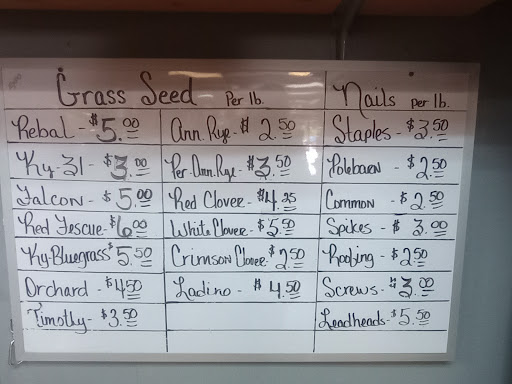 Grass Seed Per lb.
Rebal - $5.00
Ky-31 - $3.00
Falcon - $5.00
Red Fescue - $6.00
Ky-Bluegrass $5.50
Orchard - $4.50
Timothy - $3.50
Ann. Rye - $2.50
Per. Ann. Rye - $3.50
Red Clover - $4.25
White Clover - $5.50
Crimson Clover - $2.50
Ladino - $4.50
Nails per lb.
Staples - $3.50
Polebarn - $2.50
Common - $2.50
Spikes - $3.00
Roofing - $2.50
Screws - $3.00
Leadheads - $5.50